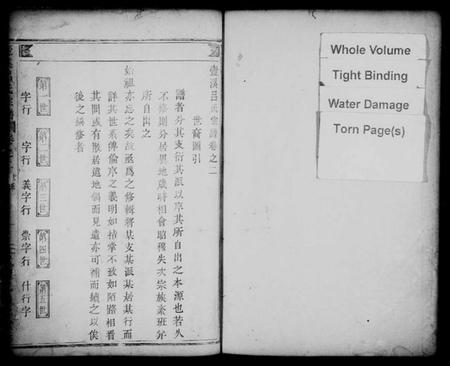 壺溪呂氏宗譜卷之二
世裔圖引
譜者分其支衍其派以序其所自出之本源也若久
不修則分居異地歲時相會昭穆失次宗族紊班弁
所自出之
始祖亦忘之矣故亟為之修輯將某支某派某居某行而
詳其世系傳倫序之義明如指掌不致如陌路相看
其間或有散居遠地偶而見遺亦可補而續之以俟
後之纘修者
第一世
第二世
第三世
第四世
第五世
字行
字行
義字行
崇字行
什行字
Whole Volume
Tight Binding
Water Damage
Torn Page(s)